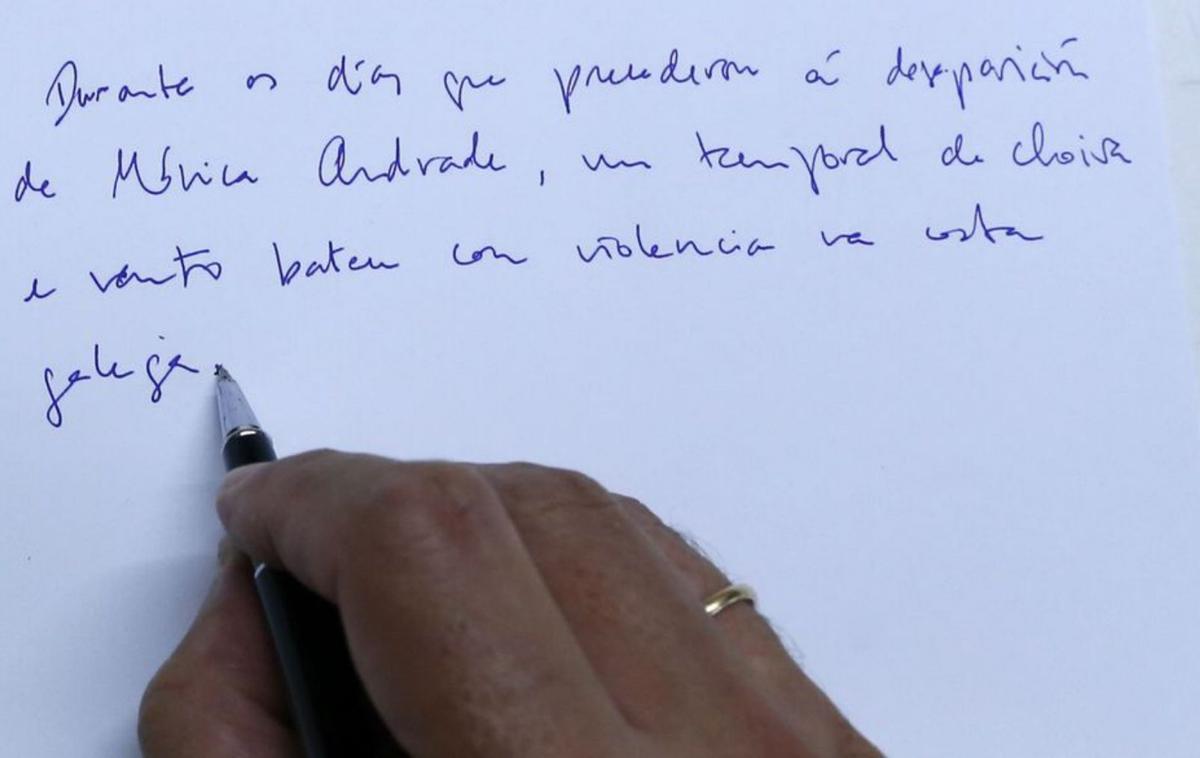 Durante os días que precederon á desaparición
de Mónica Andrade, un temporal de choiva
e vento bateu con violencia na costa
galega.